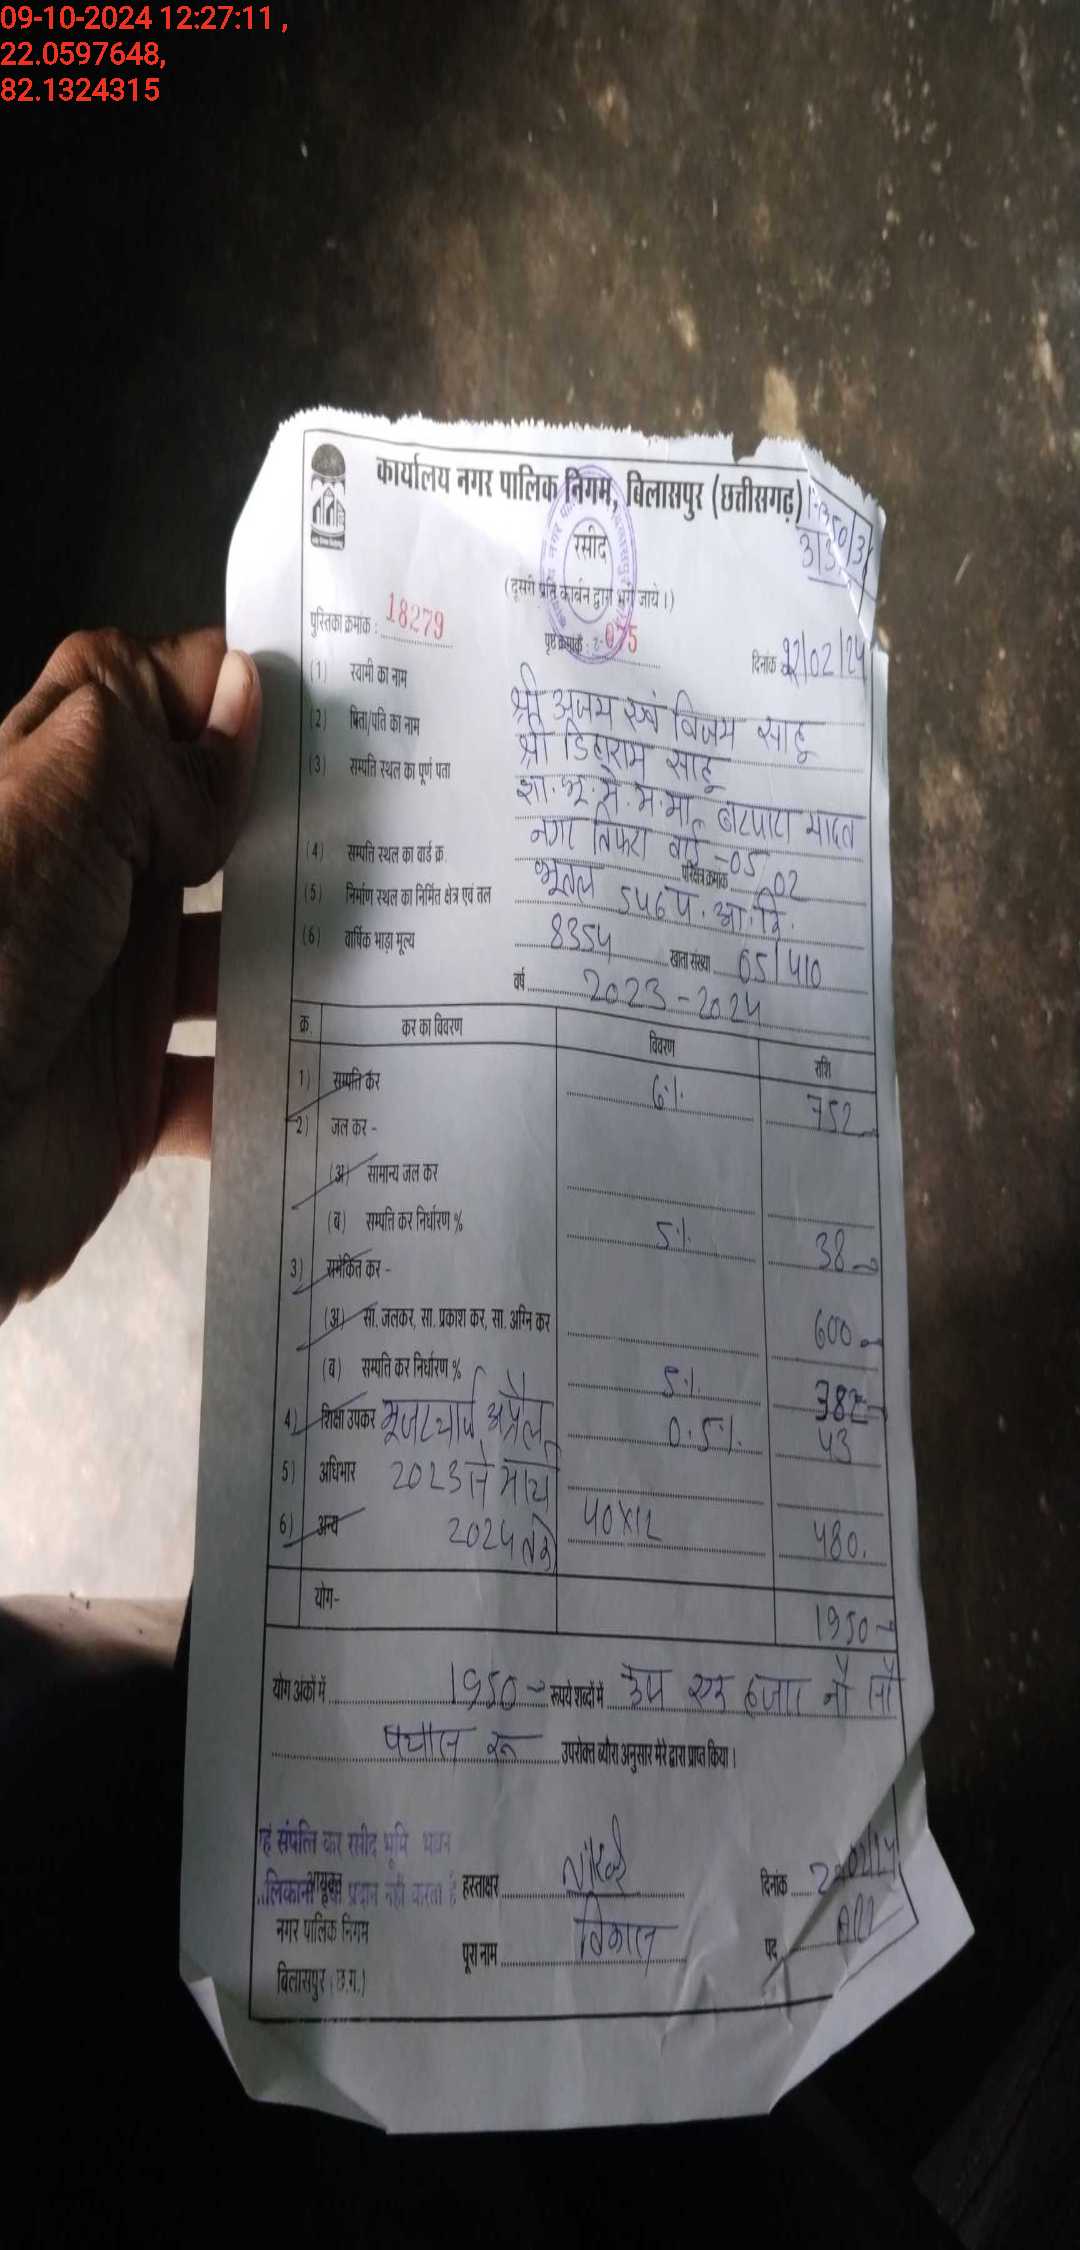 09-10-2024 12:27:11 ,
22.0597648,
82.1324315
कार्यालय नगर पालिक निगम, बिलासपुर (छत्तीसगढ़)
रसीद
(दूसरी प्रति कार्बन द्वारा भरी जाये।)
पुस्तिका क्रमांक : 18279 पृष्ठ क्रमांक : दिनांक 22/02/24
(1) स्वामी का नाम श्री अजय एवं विजय साहू
(2) पिता/पति का नाम श्री डिहाराम साहू
(3) सम्पत्ति स्थल का पूर्ण पता
नगर तिफरा वार्ड -05
(4) सम्पत्ति स्थल का वार्ड क्र. परिक्षेत्र क्रमांक 02
(5) निर्माण स्थल का निर्मित क्षेत्र एवं तल भूतल 546
(6) वार्षिक भाड़ा मूल्य 8354 खाता संख्या 65/410
वर्ष 2023-2024
क्र. कर का विवरण विवरण राशि
1) सम्पत्ति कर 6% 752
2) जल कर -
(अ) सामान्य जल कर
(ब) सम्पत्ति कर निर्धारण % 5% 38
3) समेकित कर -
(अ) सा. जलकर, सा. प्रकाश कर, सा. अग्नि कर 600
(ब) सम्पत्ति कर निर्धारण % 5% 38
4) शिक्षा उपकर 0.5% 43
5) अधिभार
6) अन्य 40x12 480
यूजरचार्ज अप्रैल
2023 से मार्च
2024 तक
योग- 1950
योग अंकों में 1950 रूपये शब्दों में एक हजार नौ सौ
पचास रू उपरोक्त ब्यौरा अनुसार मेरे द्वारा प्राप्त किया।
संपत्ति कर रसीद भूमि भवन
प्रदान नही करता है
आयुक्त हस्ताक्षर दिनांक
नगर पालिक निगम
पूरा नाम विकास पद
बिलासपुर (छ.ग.)